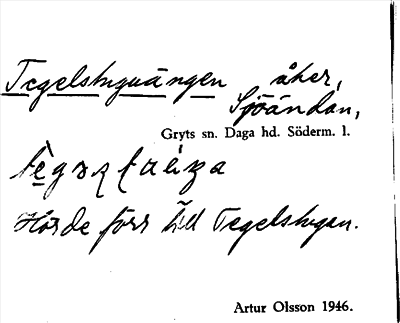 Tegelstuguängen åker,
Sjöändan,
Gryts sn. Daga hd. Söderm. l.
Hörde förr till Tegelstugan.
Artur Olsson 1946.